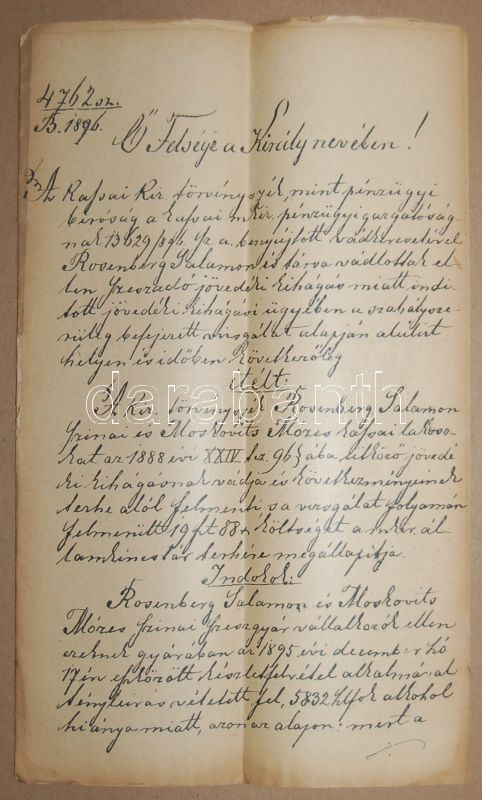 4762 sz.
B. 1896.
Ő Felsége a Király nevében!
A kassai kir. törvényszék, mint pénzügyi
biróság a kassai m kir. pénzügyigazgatóság-
nak 13629/896. sz. a. benyújtott vádkeresetével
Rosenberg Salamon és társa vádlottak el-
len szeszadó jövedéki kihágás miatt indi-
tott jövedéki kihágási ügyében a szabálysze-
rüleg befejezett vizsgálat alapján alulirt
helyen és időben következőleg
itélt:
A kir. törvényszék Rosenberg Salamon
szinai és Moskovits Mózes kassai lakoso-
kat az 1888 évi XXIV. tcz. 96 § ába ütköző jövedé-
ki kihágásnak vádja és következményeinek
terhe alól felmenti s a vizsgálat folyamán
felmerült 19 ft 88 kr költséget a m. kir. ál-
lamkincstár terhére megállapitja.
Indokok:
Rosenberg Salamon és Moskovits
Mózes szinai szeszgyár vállalkozók ellen
ezeknek gyárában az 1895 évi december hó
17 én eszközölt készletfelvétel alkalmával
tényleirás vétetett fel, 5832 hlfok alkohol
hiánya miatt, azon az alapon: mert a
darabanth.com